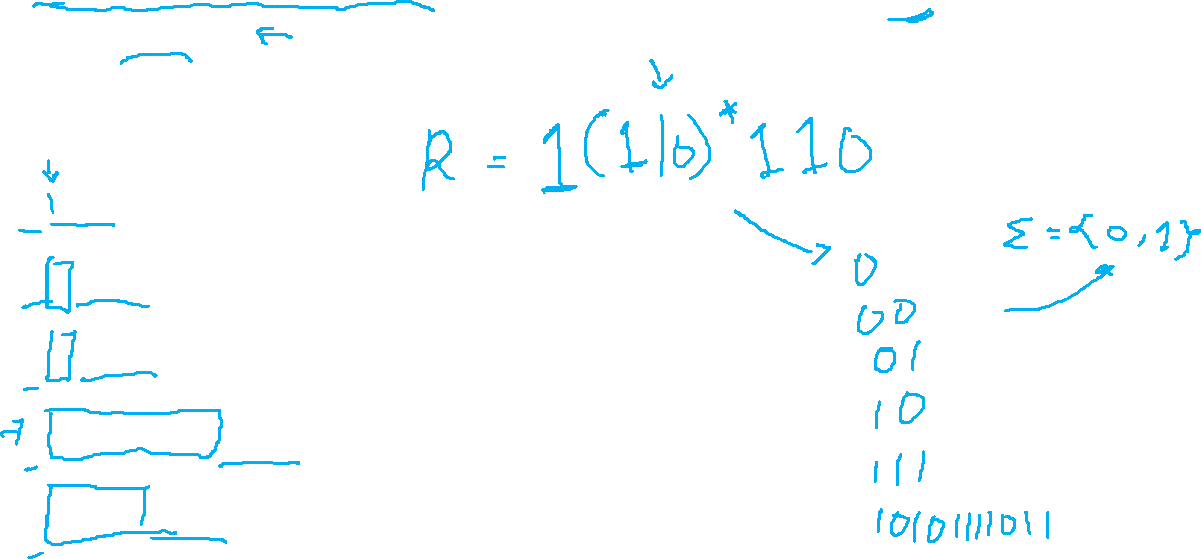 R = 1(1|0)*110
Σ = {0,1}
0
00
01
10
111
10101111011